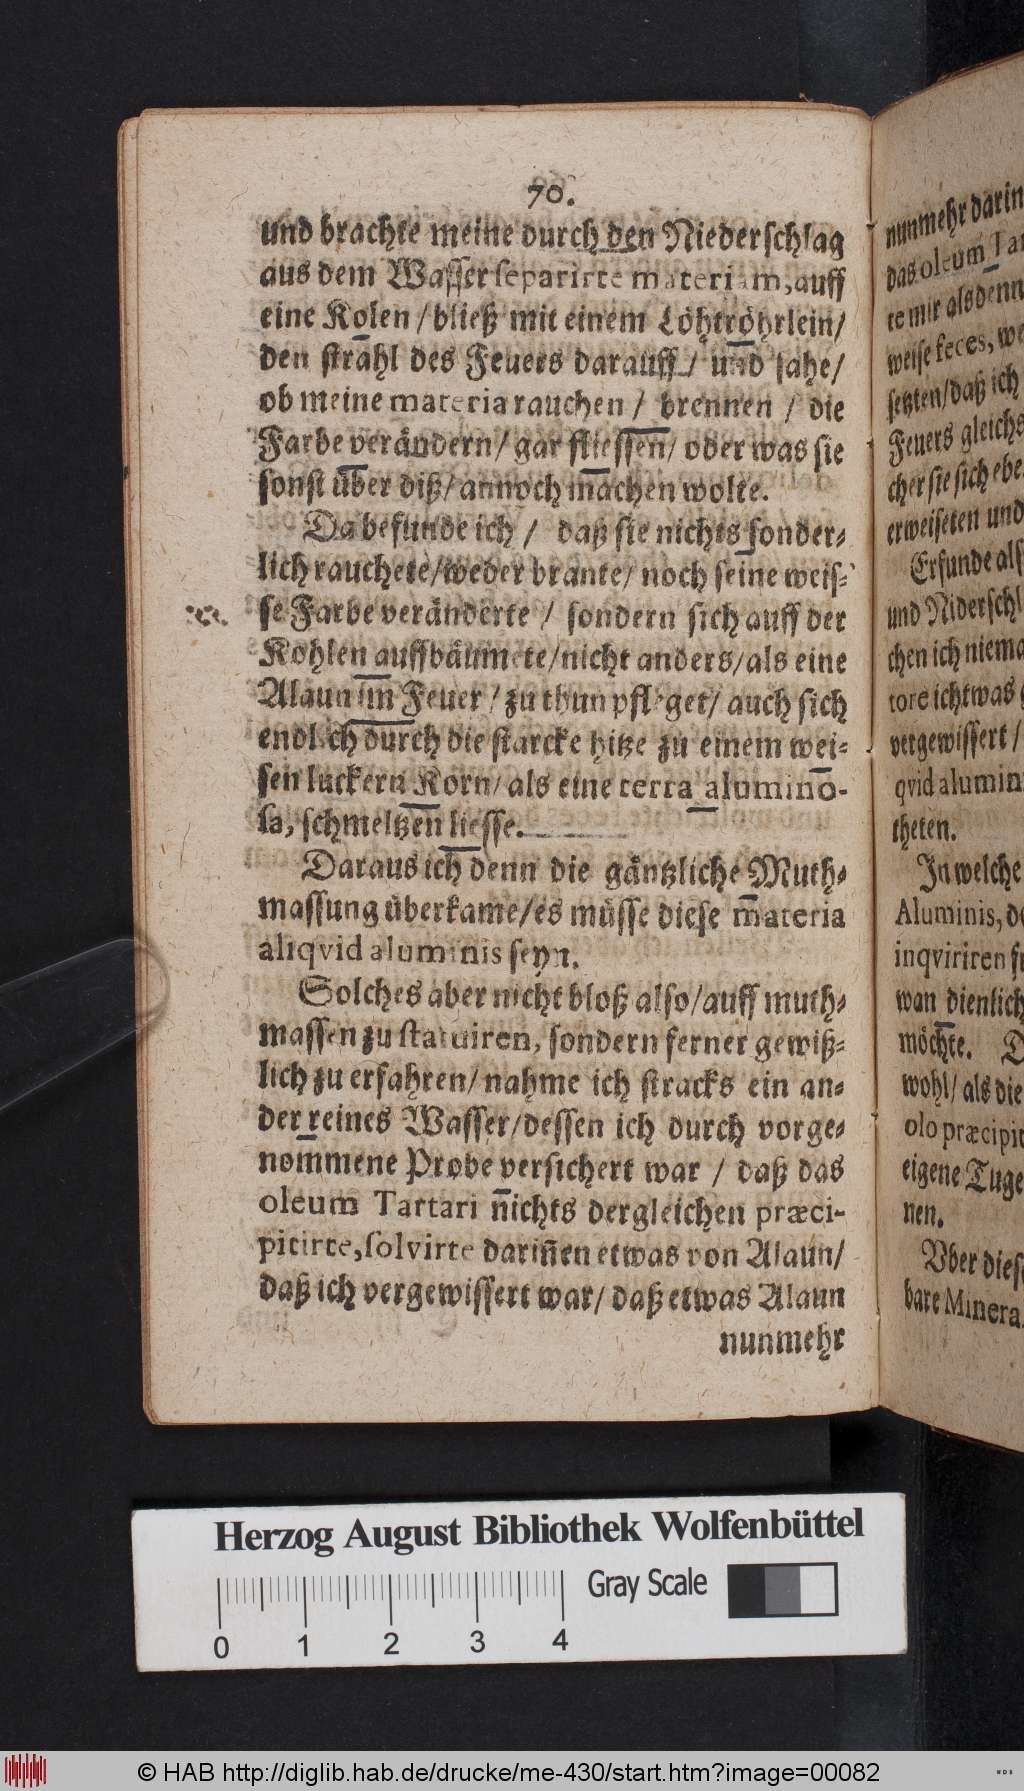 70.
und brachte meine durch den Niederschlag
aus dem Wasser separirte materiam, auff
eine Kolen / bließ mit einem Löhtröhrlein /
den strahl des Feuers darauff / und sahe /
ob meine materia rauchen / brennen / die
Farbe verändern / gar fliessen / oder was sie
sonst über diß / annoch machen wolte.
Da befunde ich / daß sie nichts sonder-
lich rauchete / weder brante / noch seine weis-
se Farbe veränderte / sondern sich auff der
Kohlen auffbäumete / nicht anders / als eine
Alaun im Feuer / zu thun pfleget / auch sich
endlich durch die starcke hitze zu einem wei-
sen luckern Korn / als eine terra alumino-
sa, schmeltzen liesse.
Daraus ich denn die gäntzliche Muth-
massung überkame / es müsse diese materia
aliqvid aluminis seyn.
Solches aber nicht bloß also / auff muth-
massen zu statuiren, sondern ferner gewiß-
lich zu erfahren / nahme ich stracks ein an-
der reines Wasser / dessen ich durch vorge-
nommene Probe versichert war / daß das
oleum Tartari nichts dergleichen præci-
pitirte, solvirte dariñen etwas von Alaun /
daß ich vergewissert war / daß etwas Alaun
nunmehr
nunmehr darin
das oleum Tar
te mir alsdenn
weise feces, we
setzten / daß ich
Feuers gleichs
cher sie sich ebe
erweiseten und
Erfunde als
und Niderschl
chen ich niema
tore ichtwas
vergewissert /
qvid alumin
theten.
In welche
Aluminis, de
inqviriren
wan dienlich
möchte. D
wohl / als die
olo præcipit
eigene Tuge
nen.
Vber diese
bare Minera
Herzog August Bibliothek Wolfenbüttel
Gray Scale
0 1 2 3 4
© HAB http://diglib.hab.de/drucke/me-430/start.htm?image=00082